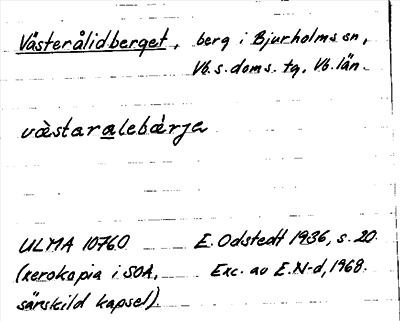 Västerålidberget, berg i Bjurholms sn,
Vb. s. doms. tg, Vb. län.
vàstaralebǽrje
ULMA 10760 E. Odstedt 1936, s. 20.
(xerokopia i SOA, Exc. av E. N-d, 1968.
särskild kapsel).